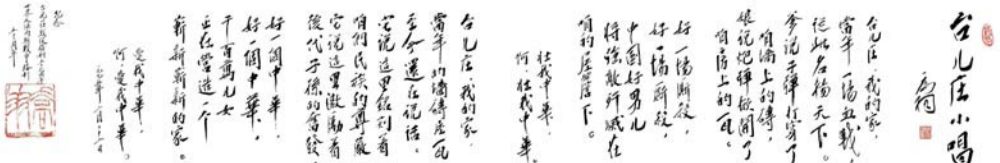 台儿庄小唱
台儿庄，我的家，
当年一场血战
从此名扬天下。
咱墙上的砖，
爹说子弹打穿了
娘说炮弹掀开了
咱房上的瓦。
好一场厮杀，
好一场厮杀，
中国好男儿
将强敌歼灭在
咱的屋檐下。
壮我中华，
何壮我中华。
台儿庄，我的家，
當年的墙砖屋瓦
至今還在说话。
它说这里铭刻着
咱们民族的尊严
它说這里激励着
後代子孫的奮發
好一個中華，
好一個中華，
千百萬儿女
正在营造一个
嶄新嶄新的家。
爱我中華，
何爱我中華。